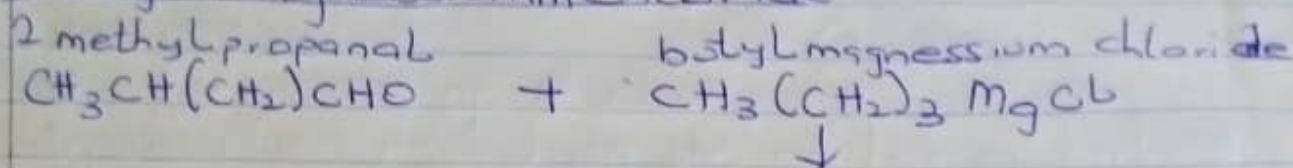 2 methylpropanal butylmagnessium chloride
CH₃CH(CH₂)CHO + CH₃(CH₂)₃MgCl
↓